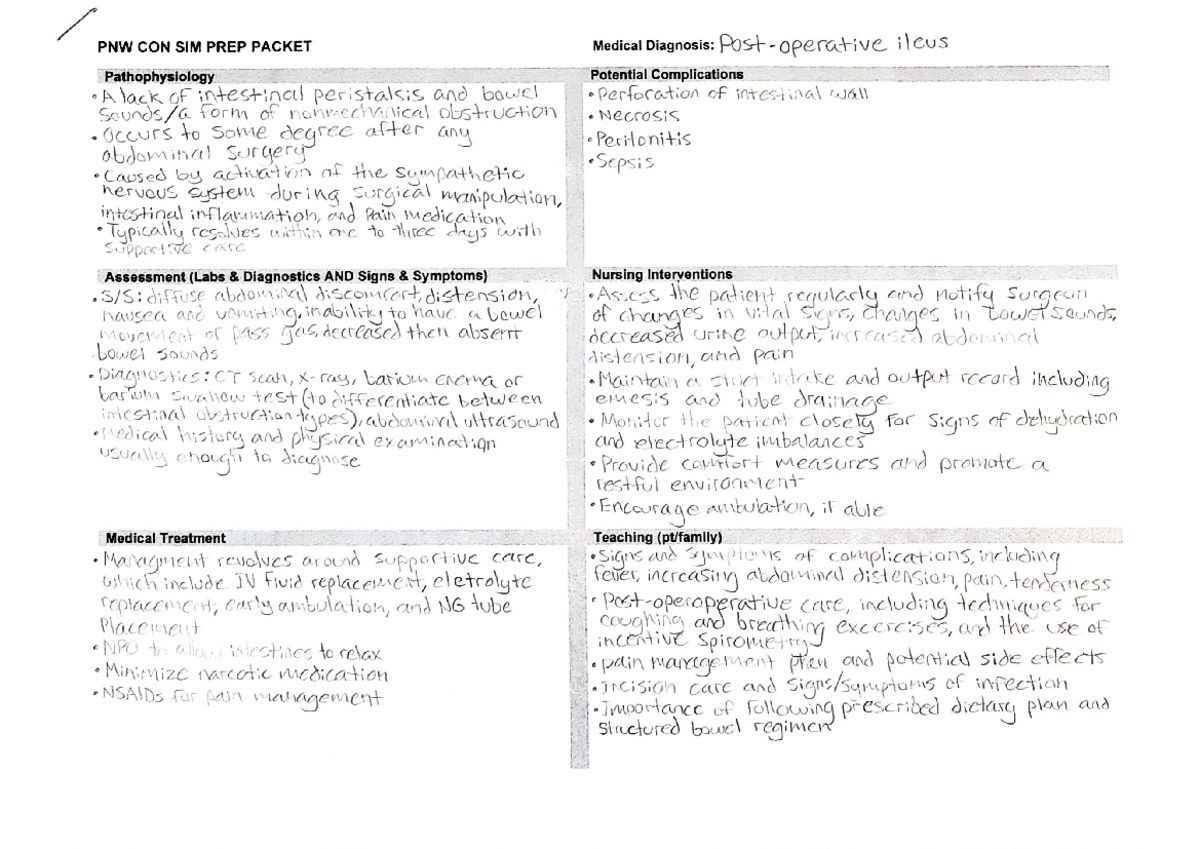 PNW CON SIM PREP PACKET
Medical Diagnosis: Post-operative ileus
Pathophysiology
• A lack of intestinal peristalsis and bowel
sounds/a form of nonmechanical obstruction
• Occurs to some degree after any
abdominal surgery
• Caused by activation of the sympathetic
nervous system during surgical manipulation,
intestinal inflammation, and pain medication
• Typically resolves within one to three days with
supportive care
Potential Complications
• Perforation of intestinal wall
• Necrosis
• Peritonitis
• Sepsis
Assessment (Labs & Diagnostics AND Signs & Symptoms)
• S/S: diffuse abdominal discomfort, distension,
nausea and vomiting, inability to have a bowel
movement or pass gas, decreased then absent
bowel sounds
• Diagnostics: CT scan, x-ray, barium enema or
barium swallow test (to differentiate between
intestinal obstruction types), abdominal ultrasound
• Medical history and physical examination
usually enough to diagnose
Nursing Interventions
• Assess the patient regularly and notify surgeon
of changes in vital signs, changes in bowel sounds,
decreased urine output, increased abdominal
distension, and pain
• Maintain a strict intake and output record including
emesis and tube drainage
• Monitor the patient closely for signs of dehydration
and electrolyte imbalances
• Provide comfort measures and promote a
restful environment
• Encourage ambulation, if able
Medical Treatment
• Managment revolves around supportive care,
which include IV fluid replacement, eletrolyte
replacement, early ambulation, and NG tube
placement
• NPO to allow intestines to relax
• Minimize narcotic medication
• NSAIDs for pain management
Teaching (pt/family)
• Signs and symptoms of complications, including
fever, increasing abdominal distension, pain, tenderness
• Post-operoperative care, including techniques for
coughing and breathing excercises, and the use of
incentive spirometry
• pain management plan and potential side effects
• Incision care and signs/symptoms of infection
• Importance of following prescribed dietary plan and
structured bowel regimen